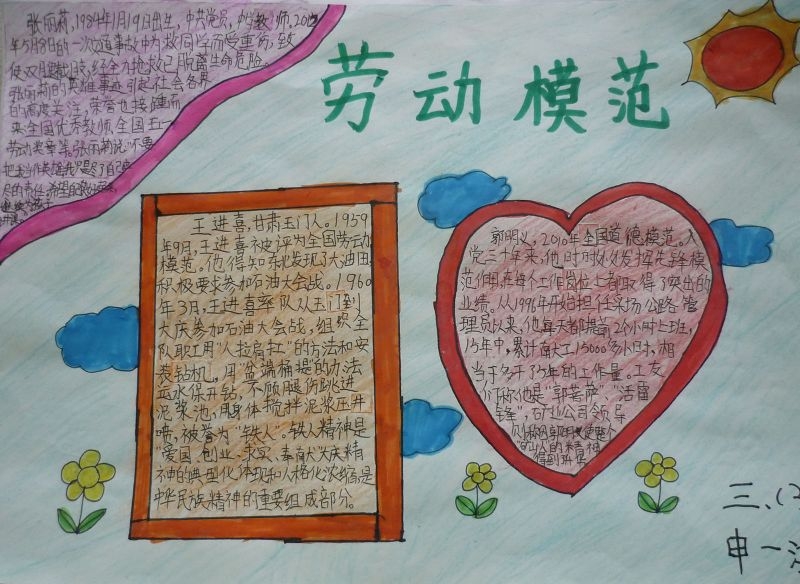 张丽莉,1984年1月19日出生,中共党员,中学教师,2012
年5月8日的一次交通事故中为救同学而受重伤,致
使双腿截肢,经全力抢救已脱离生命危险。
张丽莉的英雄事迹引起社会各界
的高度关注,荣誉也接踵而
来全国优秀教师全国五一
劳动奖章等。张丽莉说"不要
把我当作英雄我只是尽了自己应
尽的责任,希望
劳动模范
王进喜,甘肃玉门人。1959
年9月,王进喜被评为全国劳动
模范。他得知东北发现了大油田,
积极要求参加石油大会战。1960
年3月,王进喜率队从玉门到
大庆参加石油大会战,组织全
队职工用"人拉肩扛"的方法和安
装钻机,用"盆端桶提"的办法
运水保开钻,不顾腿伤跳进
泥浆池,用身体搅拌泥浆压井
喷,被誉为"铁人"。铁人精神是
爱国、创业、求实、奉献大庆精
神的典型化体现和人格化浓缩,是
中华民族精神的重要组成部分。
郭明义,2010年全国道德模范。入
党三十年来,他时时处处发挥先锋模
范作用,在每个工作岗位上都取得了突出的
业绩。从1996年开始担任采场公路管
理员以来,他每天都提前2个小时上班,
15年中,累计献工15000多小时,相
当于多干了5年的工作量。工友
们称他是"郭菩萨"、"活雷
锋",矿业公司领导
则称因郭明义使整个
的人的精神
得到升华
三、(2
申一